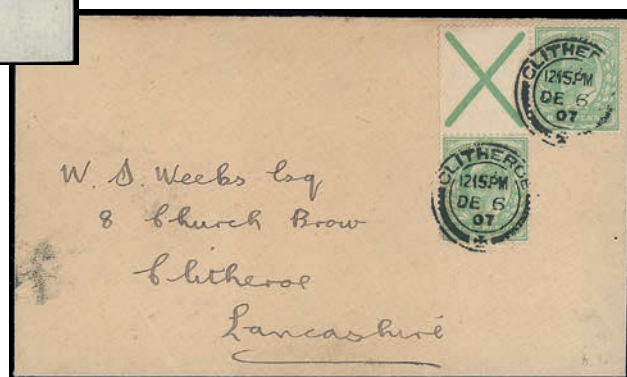 CLITHER
12.15.PM
DE 6
07
CLITHEROE
12.15.PM
DE 6
07
W. S. Weeks Esq
8 Church Brow
Clitheroe
Lancashire